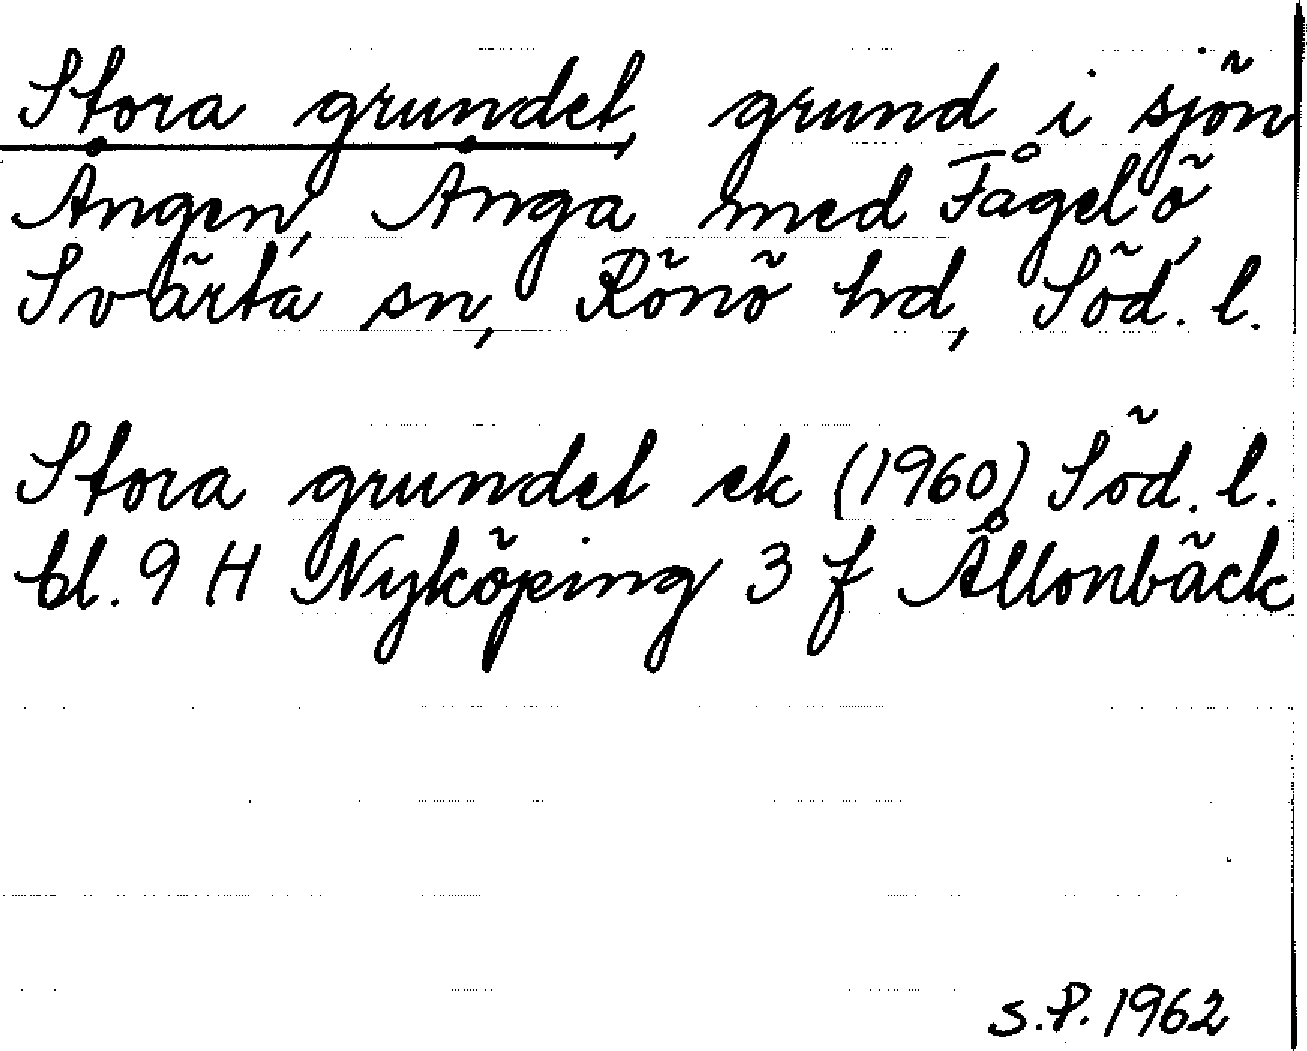 Stora grundet, grund i sjön
Angen, Anga med Fågelö,
Svärta sn, Rönö hd, Söd. l.
Stora grundet ek (1960) Söd. l.
bl. 9 H Nyköping 3 f Ållonbäck
S.P. 1962